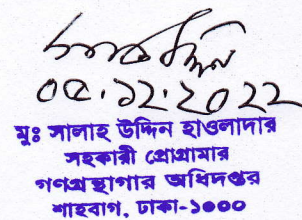 ০৫.১২.২০২২
মুঃ সালাহ উদ্দিন হাওলাদার
সহকারী প্রোগ্রামার
গণগ্রন্থাগার অধিদপ্তর
শাহবাগ, ঢাকা-১০০০